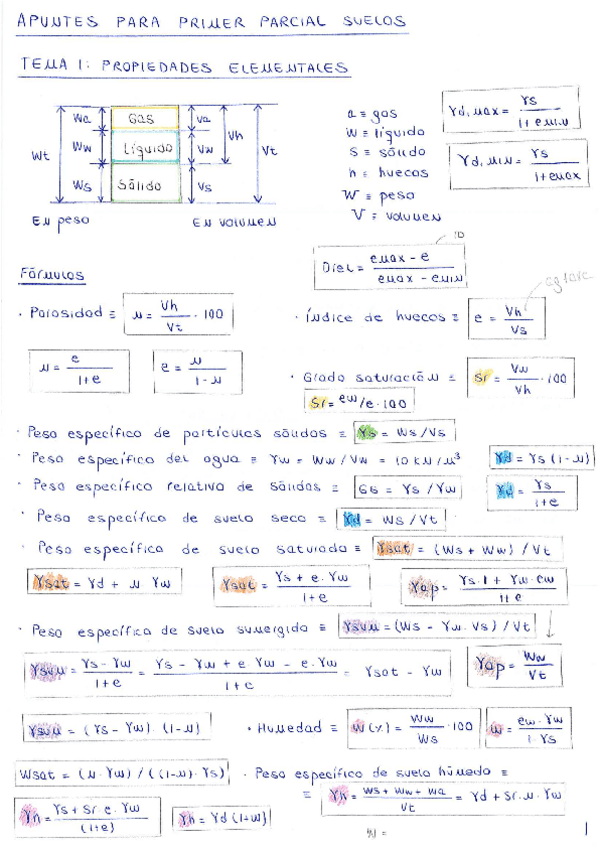 APUNTES PARA PRIMER PARCIAL SUELOS
TEMA 1: PROPIEDADES ELEMENTALES
Wt Wa Ww Ws
Gas
Líquido
Sólido
Va Vw Vs Vh Vt
En peso
En volumen
a ≡ gas
w ≡ líquido
s ≡ sólido
h ≡ huecos
W ≡ peso
V ≡ volumen
γd,max = γs / (1+emin)
γd,min = γs / (1+emax)
Drel = (emax - e) / (emax - emin)
ID
Fórmulas
· Porosidad ≡ n = Vh / Vt · 100
· Índice de huecos ≡ e = Vh / Vs
n = e / (1+e)
e = n / (1-n)
· Grado saturación ≡ Sr = Vw / Vh · 100
Sr = ew/e · 100
· Peso específico de partículas sólidas ≡ γs = Ws/Vs
· Peso específico del agua ≡ γw = Ww/Vw = 10 kN/m³
γd = γs (1-n)
· Peso específico relativo de sólidos ≡ Gs = γs/γw
γd = γs / (1+e)
· Peso específico de suelo seco ≡ γd = Ws/Vt
· Peso específico de suelo saturado ≡ γsat = (Ws + Ww) / Vt
γsat = γd + n · γw
γsat = (γs + e · γw) / (1+e)
γap = (γs · 1 + γw · ew) / (1+e)
· Peso específico de suelo sumergido ≡ γsum = (Ws - γw · Vs) / Vt
γsum = (γs - γw) / (1+e) = (γs - γw + e · γw - e · γw) / (1+e) = γsat - γw
γap = Ww / Vt
γsum = (γs - γw) · (1-n)
· Humedad ≡ w(%) = Ww / Ws · 100
w = (ew · γw) / (1 · γs)
Wsat = (n · γw) / ((1-n) · γs)
· Peso específico de suelo húmedo ≡
= γh = (Ws + Ww + Wa) / Vt = γd + Sr · n · γw
γh = (γs + Sr · e · γw) / (1+e)
γh = γd (1+w)
1